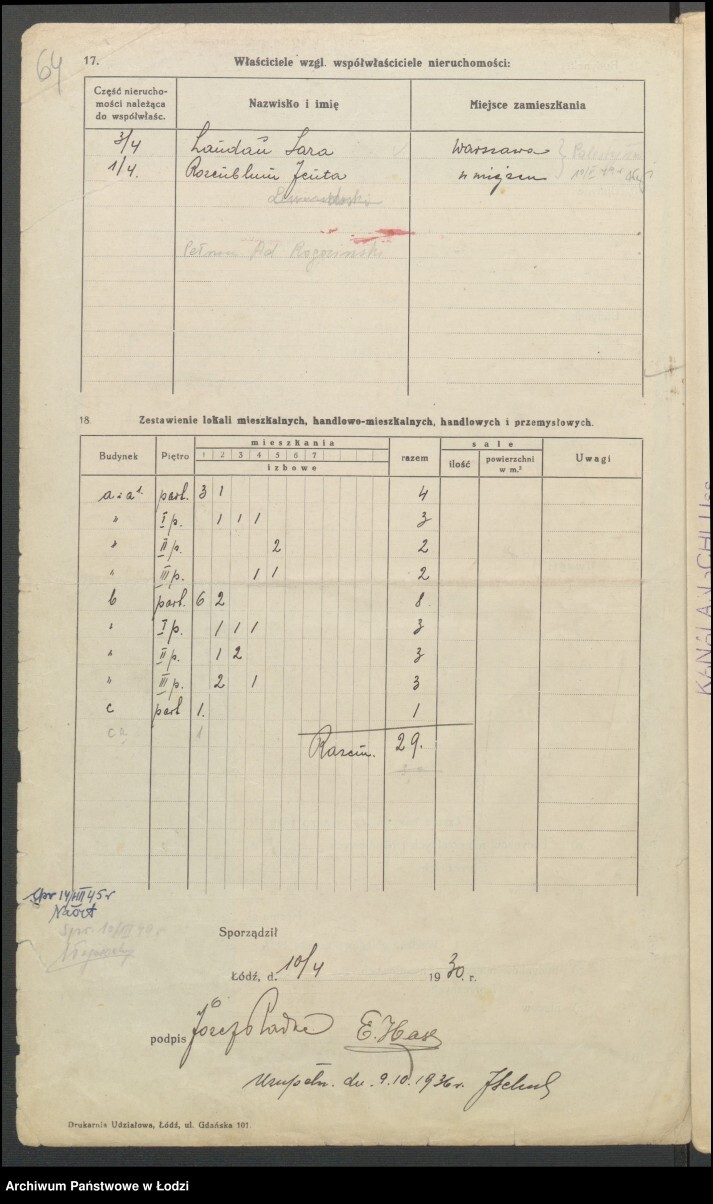 64
17. Właściciele wzgl. współwłaściciele nieruchomości:
Część nierucho-
mości należąca
do współwłaśc.
Nazwisko i imię
Miejsce zamieszkania
3/4 Landau Sara Warszawa
1/4. Rozenblum Jenta w miejscu
Ad Rogoziński
18. Zestawienie lokali mieszkalnych, handlowo-mieszkalnych, handlowych i przemysłowych.
Budynek Piętro mieszkania razem sale Uwagi
1 2 3 4 5 6 7 ilość powierzchni
izbowe w m.²
a i a¹. part. 3 1 4
" I p. 1 1 1 3
" II p. 2 2
" III p. 1 1 2
b part. 6 2 8
" I p. 1 1 1 3
" II p. 1 2 3
" III p. 2 1 3
c part 1. 1
ca 1
Razem. 29.
Spr 14/III 45 r
Sporządził
Łódź, d. 10/4 1930. r.
podpis Józef E. Has
Uzupełn. dn. 9.10.1936 r.
Drukarnia Udziałowa, Łódź, ul. Gdańska 101.
Archiwum Państwowe w Łodzi